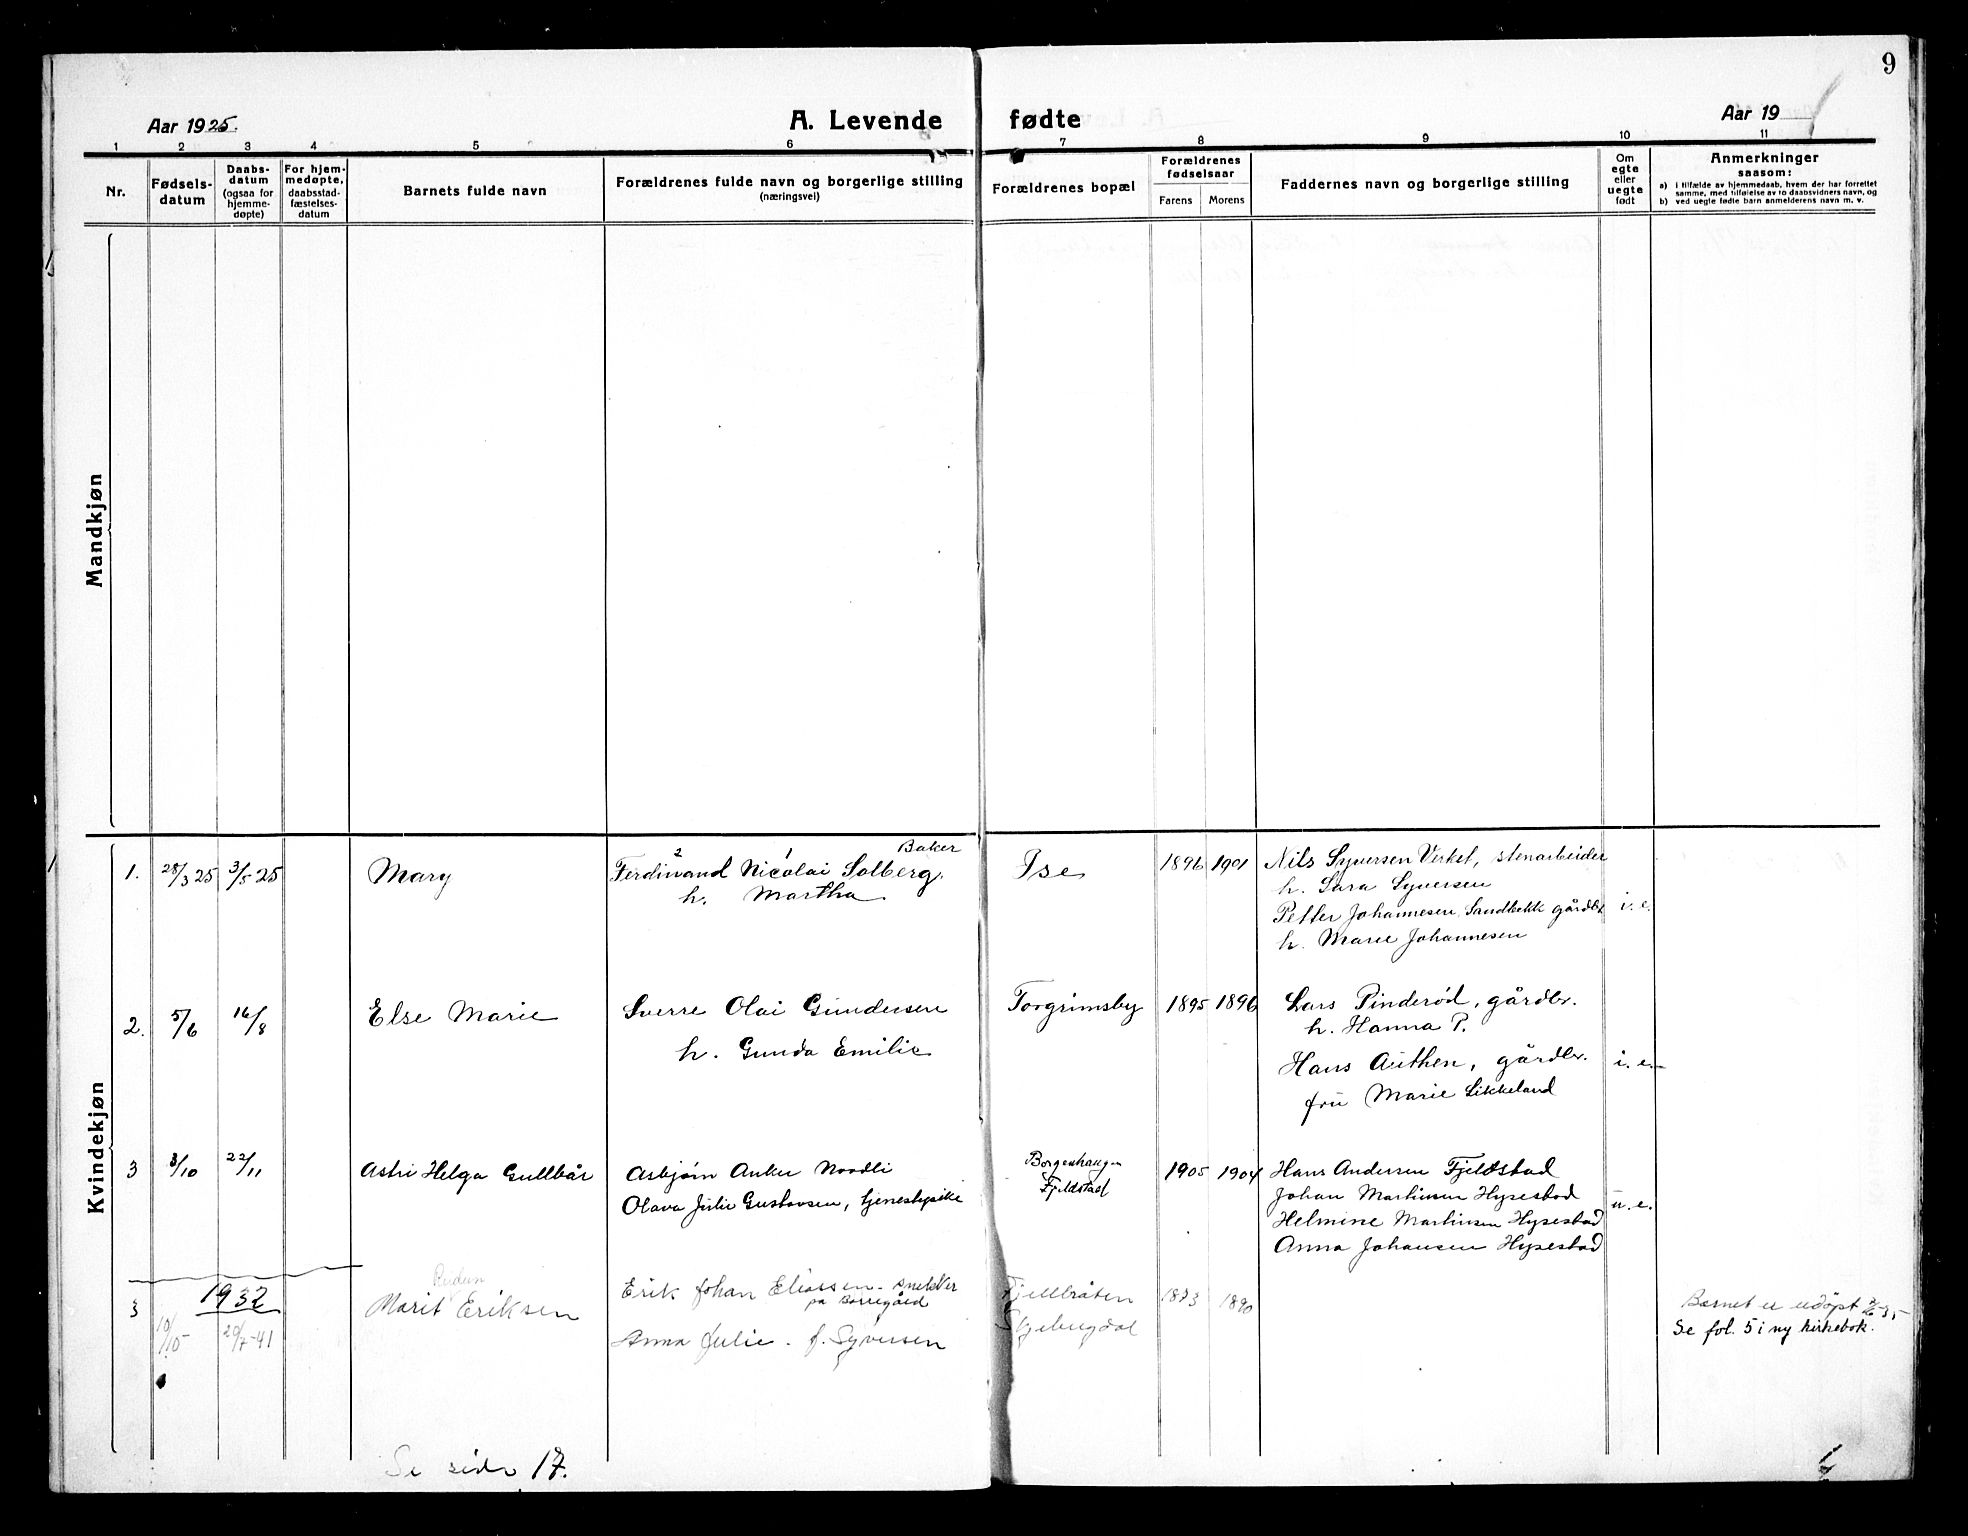 9
Aar 1925.
A. Levende fødte
Aar 19
1 2 3 4 5 6 7 8 9 10 11
Nr.
Fødsels-
datum
Daabs-
datum
(ogsaa for
hjemme-
døpte)
For hjem-
medøpte,
daabsstad-
fæstelses-
datum
Barnets fulde navn
Forældrenes fulde navn og borgerlige stilling
(næringsvei)
Forældrenes bopæl
Forældrenes
fødselsaar
Farens Morens
Faddernes navn og borgerlige stilling
Om
egte
eller
uegte
født
Anmerkninger
saasom:
a) i tilfælde av hjemmedaab, hvem der har forrettet
samme, med tilføielse av to daabsvidners navn, og
b) ved uegte fødte barn anmelderens navn m. v.
Mandkjøn
Kvindekjøn
1. 28/3 25 3/5 25 Mary
2 1 Baker
Ferdinand Nicolai Solberg.
h. Martha
Ise 1896 1901
Nils Syversen Verket, stenarbeider
h. Sara Syversen
Petter Johannesen Sandbekk gårdbr
h. Marie Johannesen
i. e.
2. 5/6 16/8 Else Marie
Sverre Olai Gundersen
h. Gunda Emilie
Torgrimsby 1895 1896
Lars Pinderød, gårdbr.
h. Hanna P.
Hans Authen, gårdbr.
fru Marie Likkeland
i. e.
3 3/10 22/11 Astri Helga Gullbår
Asbjørn Anker Noodli
Olava Julie Gustavsen, tjenestepike
Borgenhaugen
Fjeldstad
1905 1904
Hans Andersen Fjeldstad
Johan Martinsen Hysestad
Helmine Martinsen Hysestad
Anna Johansen Hysestad
u. e.
3 1932
10/10 20/7-41
Marit Eriksen
Erik Johan Eliassen - snekker
på Borregård
Anna Julie. f. Syversen
Fjellbråten
Skjebergdal
1893 1890
Barnet er udøpt
Se fol. 5 i ny kirkebok.
Se side 17.